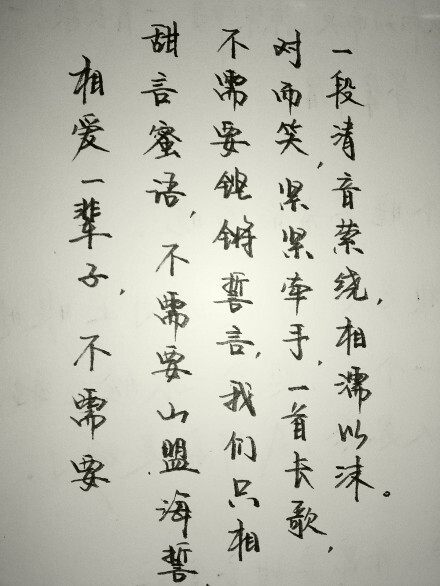 相爱一辈子，不需要
甜言蜜语，不需要山盟海誓
不需要铿锵誓言，我们只相
对而笑，紧紧牵手，一首长歌，
一段清音萦绕，相濡以沫。